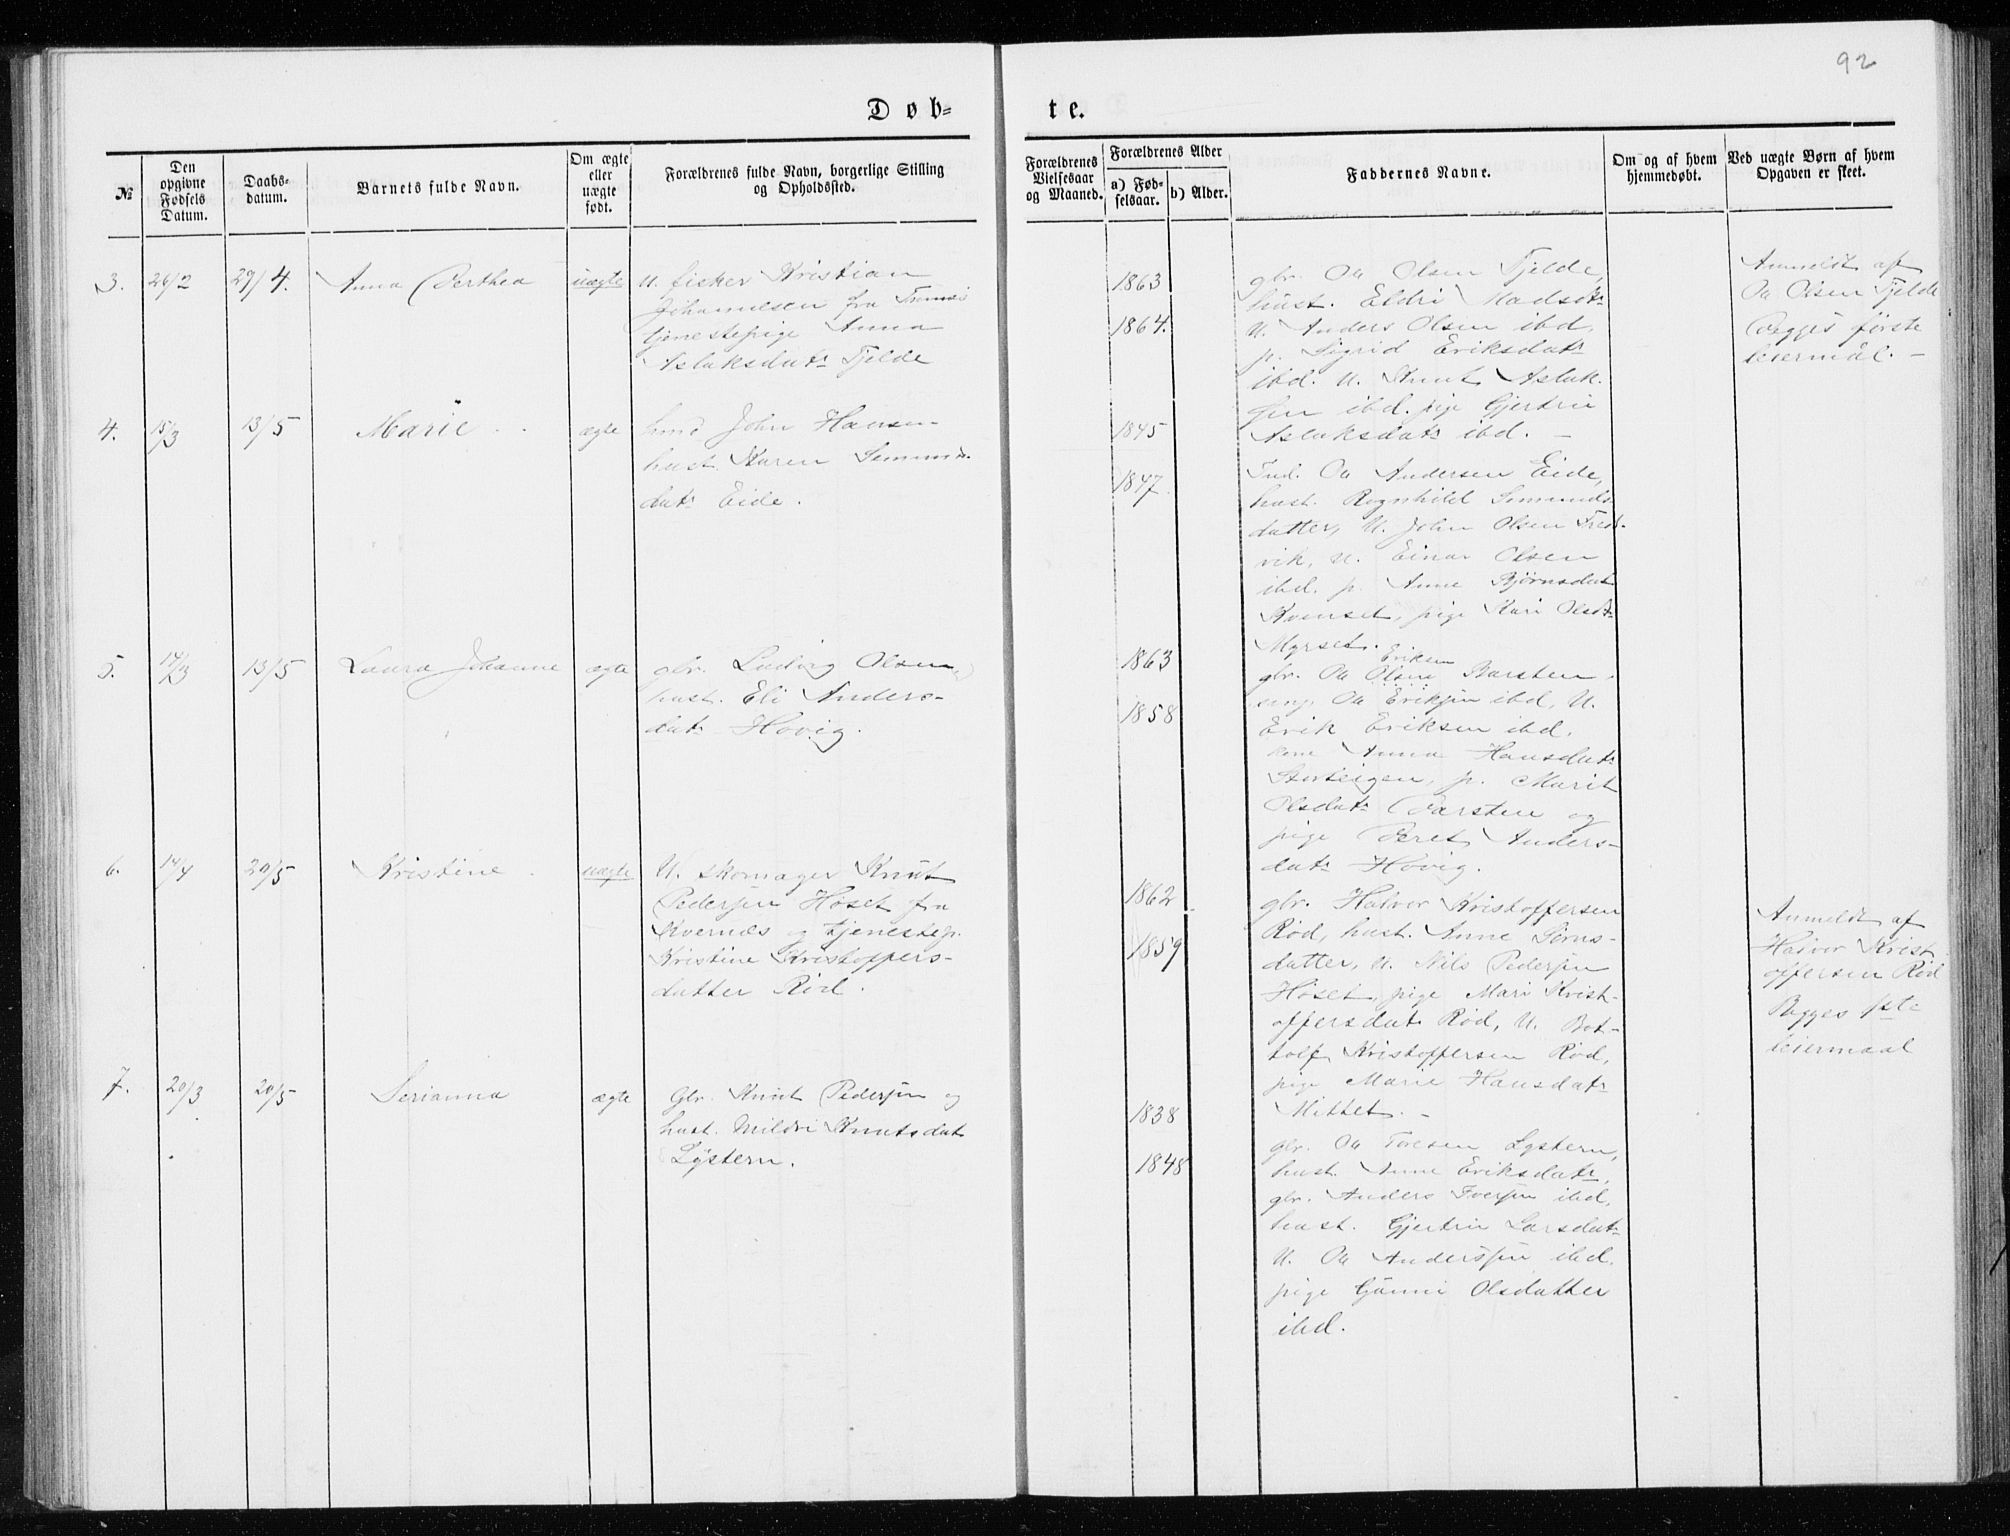 92
Døb=
te.
№
Den opgivne Fødsels Datum.
Daabs-datum.
Barnets fulde Navn.
Om ægte eller uægte født.
Forældrenes fulde Navn, borgerlige Stilling og Opholdssted.
Forældrenes Vielsesaar og Maaned.
Forældrenes Alder
a) Fød-selsaar.
b) Alder.
Faddernes Navne.
Om og af hvem hjemmedøbt.
Ved uægte Børn af hvem Opgaven er skeet.
3. 26/2 29/4. Anna Berthea uægte
U. fisker Kristian
Johannesen fra
tjenestepige Anna
Aslaksdatr Tjelde
1863
1864.
gbr. Ola Olsen Tjelde,
hust. Eldri Madsdtr
U. Anders Olsen ibd.
p. Sigrid Eriksdatr
ibd. U. Knut Aslak-
sen ibd. pige Gjertru
Aslaksdatr ibd. –
Anmeldt af
Ola Olsen Tjelde
Begges første
leiermål. –
4. 15/3 13/5 Marie ægte
John Hansen
hust. Karen Semunds-
datr Eide.
1845
1847.
Ind. Ola Andersen Eide,
hust. Ragnhild Semunds
datter, U. John Olsen
vik, U. Einar Olsen
ibd. p. Anne Bjørnsdat
Kvenset, pige Kari Olsdtr
Myrset.
5. 14/3 13/5 Laura Johanne ægte
gbr. Ludvig Olsen
hust. Eli Anders-
datr Hovig.
1863
1858
Eriksen
gbr. Ola Olsen Barsten
Ola Eriksen ibd, U.
Erik Eriksen ibd.
kone Anna Hansdatr
Storteigen, p. Marit
Olsdatr Barsten og
pige Beret Anders-
datr Hovig.
6. 14/4 20/5 Kristine uægte
U. skomager Knut
Pedersen Høset fra
Kvernæs og tjenestep.
Kristine Kristoffers-
datter Rød.
1862
1859
gbr. Halvor Kristoffersen
Rød, hust. Anne
datter, U. Nils Pedersen
Høset, pige Mari Krist-
offersdatr Rød, U. Bot-
tolf Kristoffersen Rød,
pige Marie Hansdatr
Mittet. –
Anmeldt af
Halvor Krist
offersen Rød
Begges 1ste
leiermaal
7. 20/3 20/5 Serianna ægte
Gbr. Knut Pedersen og
hust. Mildri Knutsdatr
Lystern.
1838
1848
gbr. Ola Toresen Lystern,
hust. Anne Eriksdatr,
gbr. Anders Iversen ibd,
hust. Gjertru Larsdatr
U. Ola Anderssen ibd.
pige Gunni Olsdatter
ibd.